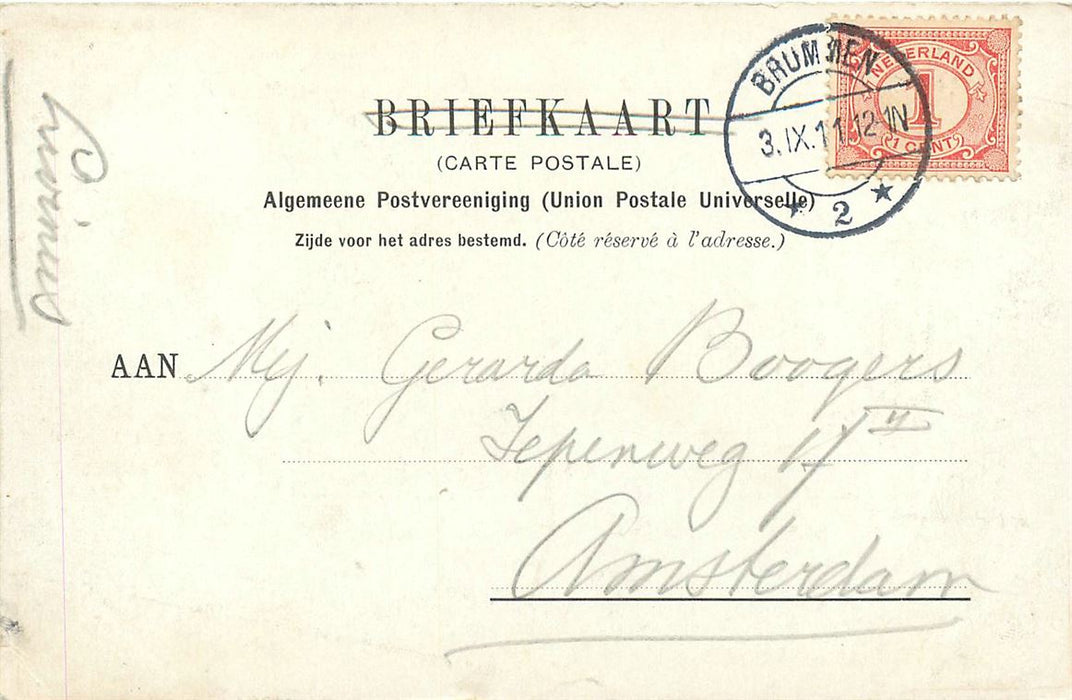 BRIEFKAART
(CARTE POSTALE)
Algemeene Postvereeniging (Union Postale Universelle)
Zijde voor het adres bestemd. (Côté réservé à l'adresse.)
BRUMMEN
3.IX.11.12-1N
2
NEDERLAND
1
(1 CENT)
AAN Mej. Gerarda Boogers
Iepenweg 17 II
Amsterdam